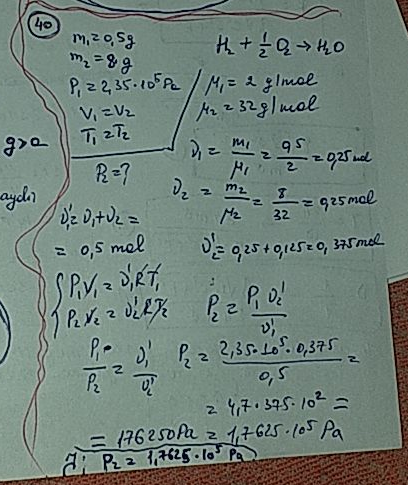 40
m₁=0,5g
m₂=8g
P₁=2,35·10⁵Pa
V₁=V₂
T₁=T₂
P₂=?
H₂+½O₂→H₂O
μ₁=2 g/mol
μ₂=32 g/mol
ν₁=m₁/μ₁=0,5/2=0,25mol
ν₂=m₂/μ₂=8/32=0,25mol
g>a
aydı
ν₁'=ν₁+ν₂=
=0,5 mol
ν₂'=0,25+0,125=0,375mol
P₁V₁=ν₁'RT₁
P₂V₂=ν₂'RT₂
P₂=P₁ν₂'/ν₁'
P₁/P₂=ν₁'/ν₂'
P₂=2,35·10⁵·0,375/0,5=
=4,7·375·10²=
=176250Pa=1,7625·10⁵Pa
P₂=1,7625·10⁵Pa